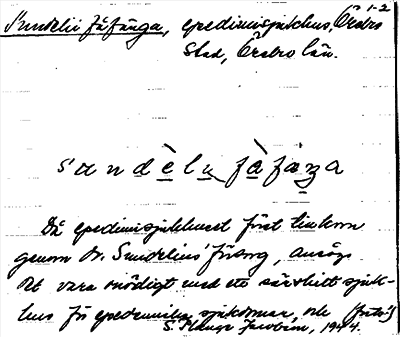 Sundelii fåfänga, epedimisjukhus, Örebro 1-2
stad, Örebro län.
sundèlu fàfäŋa
Då epedimisjukhuset först tillkom
genom Dr. Sundelius' försorg, ansågs
det vara onödigt med ett särskilt sjuk-
hus för epedemiska sjukdomar, och (forts.)
S. Hauge Jacobsen, 1944.